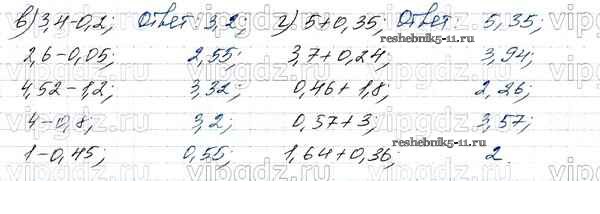 в) 3,4-0,2; Ответ 3,2; г) 5+0,35; Ответ: 5,35;
reshebnik5-11.ru
2,6-0,05; 2,55; 3,7+0,24; 3,94;
4,52-1,2; 3,32; 0,46+1,8; 2,26;
vipgdz.ru vipgdz.ru vipgdz.ru
4-0,8; 3,2; 0,57+3; 3,57;
reshebnik5-11.ru
1-0,45; 0,55; 1,64+0,36; 2.
vipgdz.ru vipgdz.ru vipgdz.ru